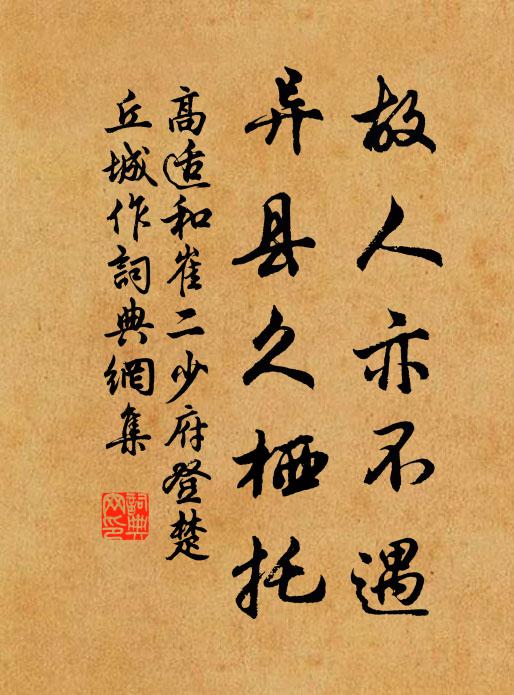 故人亦不遇
异县久栖托
高适和崔二少府登楚
丘城作詞典網集
詞典网印